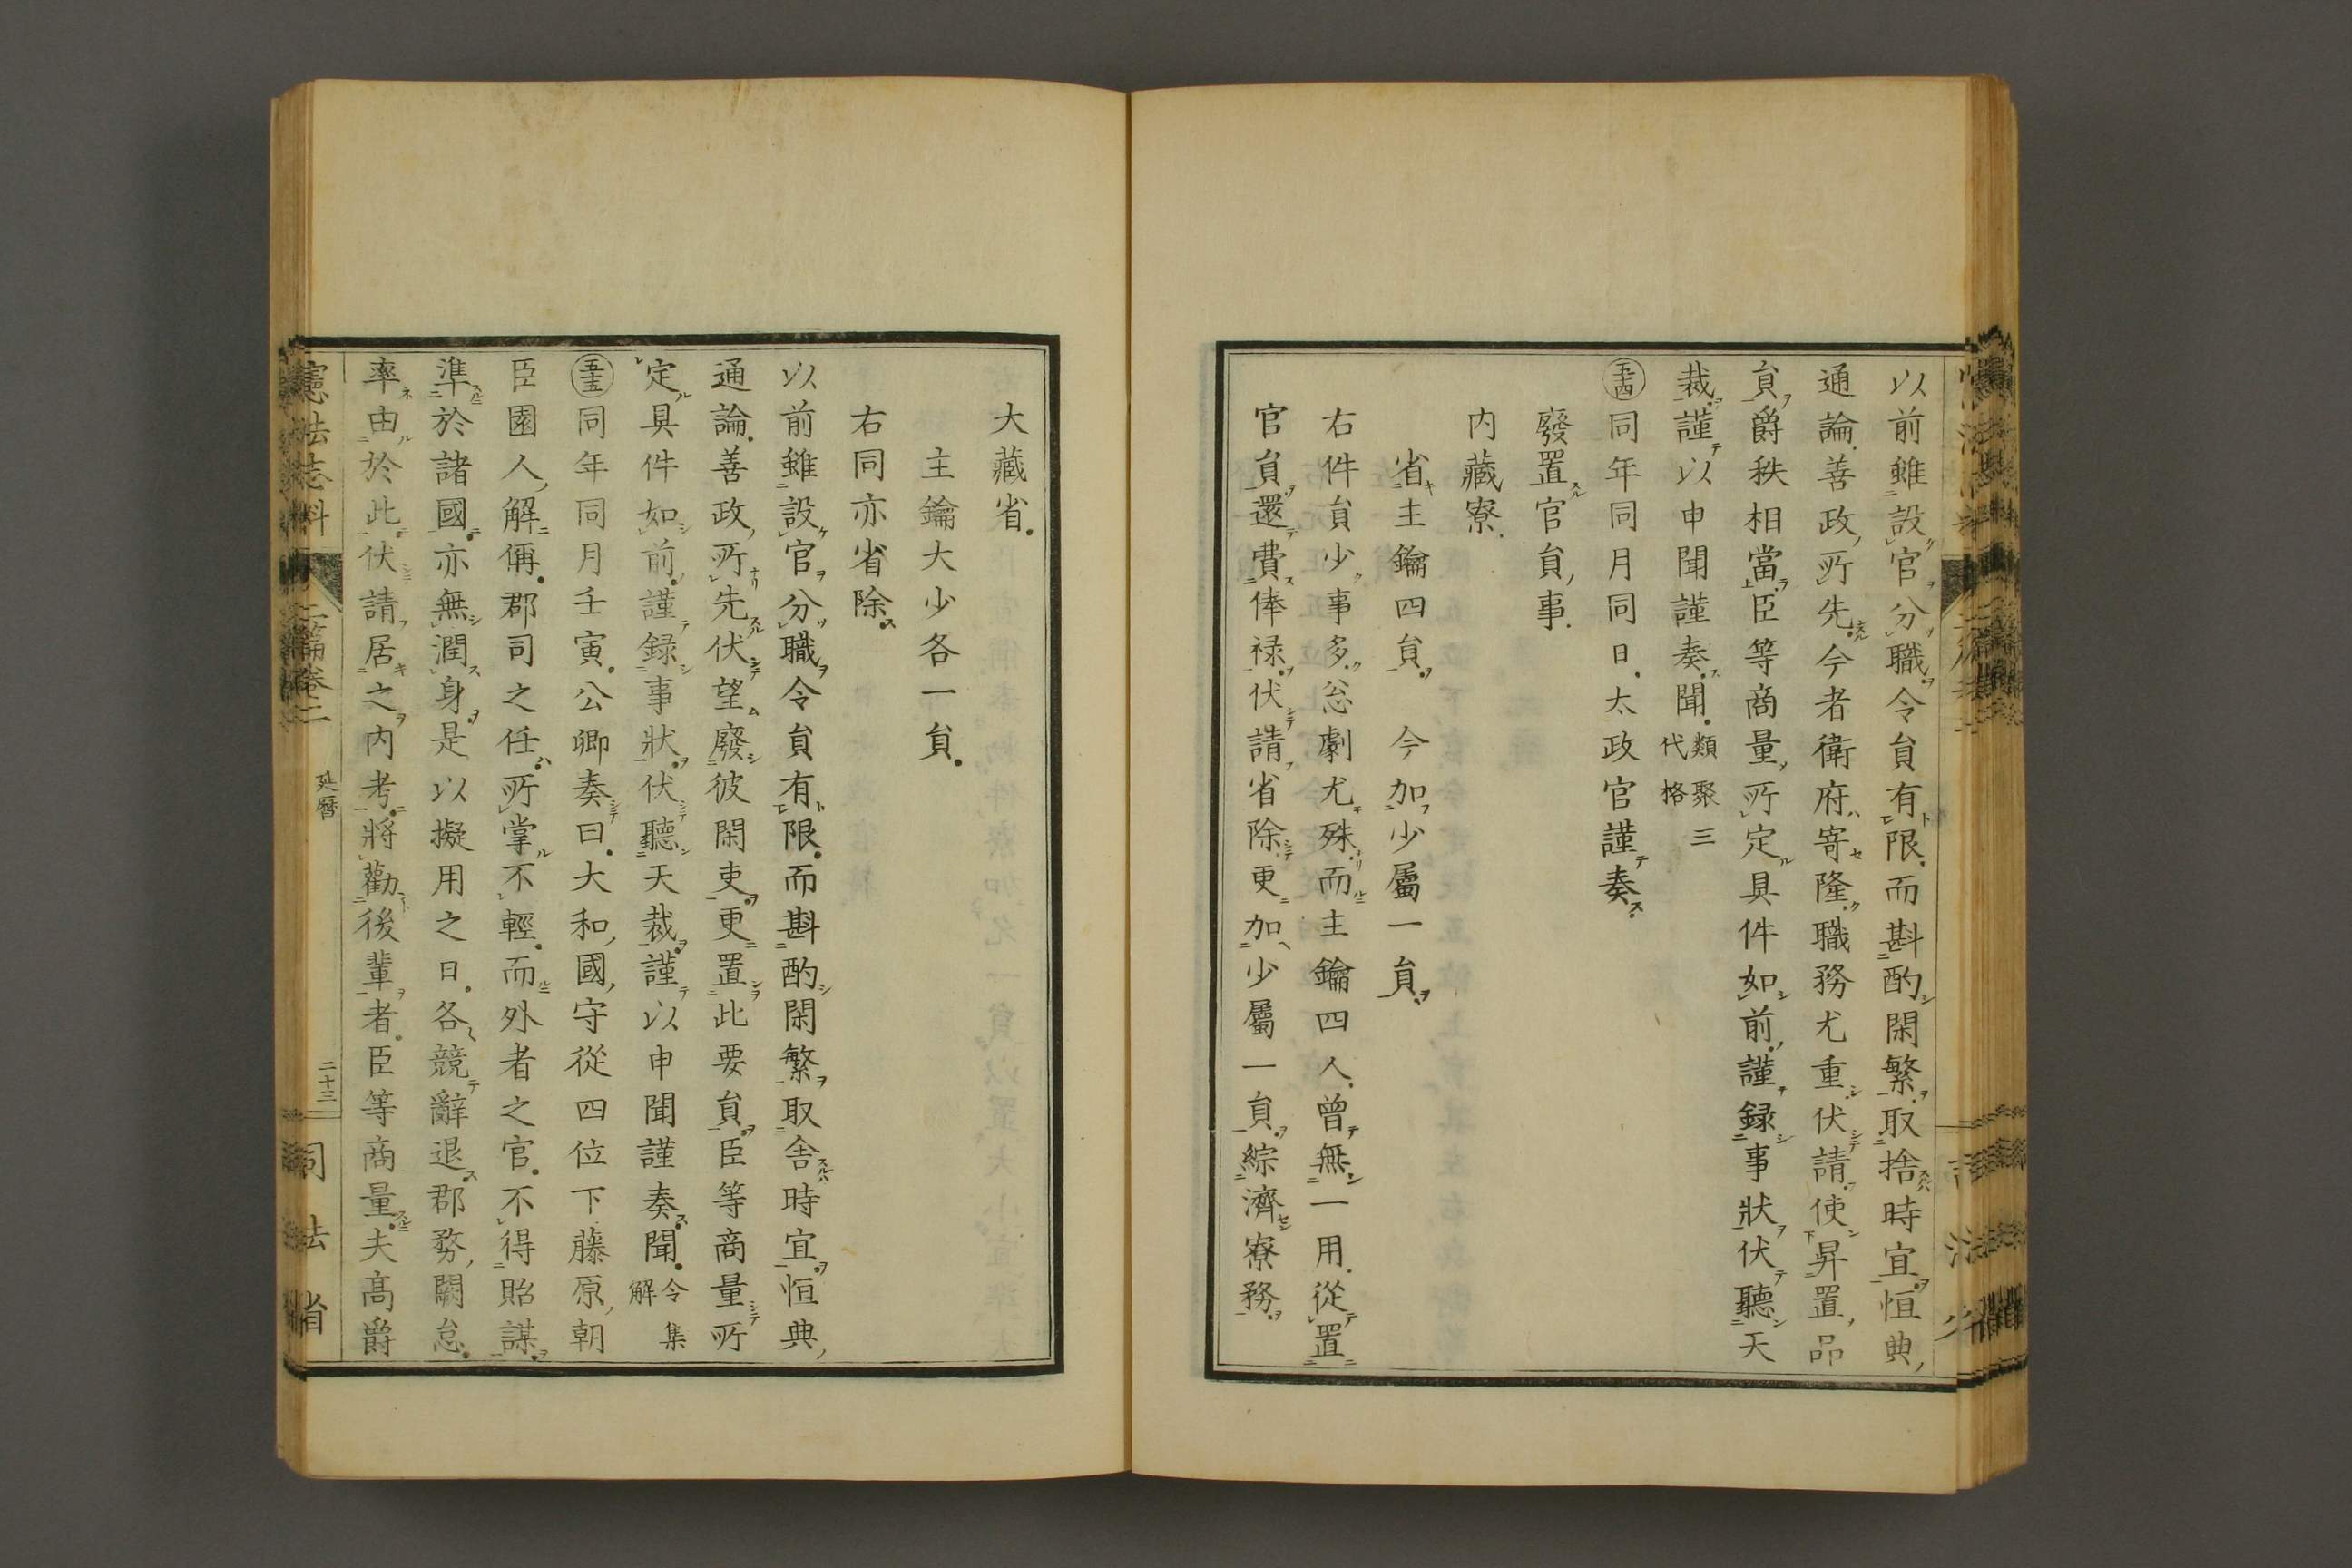 以前雖設官分職令貟有限而斟酌閑繁取捨時宜恒典
通論善政所先今者衛府寄隆職務尤重伏請使昇置品
貟爵秩相當臣等商量所定具件如前謹録事狀伏聽天
裁謹以申聞謹奏聞類聚三代格
五十四同年同月同日太政官謹奏
廢置官貟事
内藏寮
省主鑰四貟 今加少屬一貟
右件貟少事多怱劇尤殊而主鑰四人曾無一用從置
官貟還費俸禄伏請省除更加少屬一貟綜濟寮務
大藏省
主鑰大少各一貟
右同亦省除
以前雖設官分職令貟有限而斟酌閑繁取舎時宜恒典
通論善政所先伏望廢彼閑吏更置此要貟臣等商量所
定具件如前謹録事狀伏聽天裁謹以申聞謹奏聞令集解
五十五同年同月壬寅公卿奏曰大和國守從四位下藤原朝
臣園人解偁郡司之任所掌不輕而外者之官不得貽謀
準於諸國亦無潤身是以擬用之日各競辭退郡務闕怠
率由於此伏請居之内考將勸後輩者臣等商量夫髙爵
憲法志料 二篇卷二 延曆 二十三 司法省